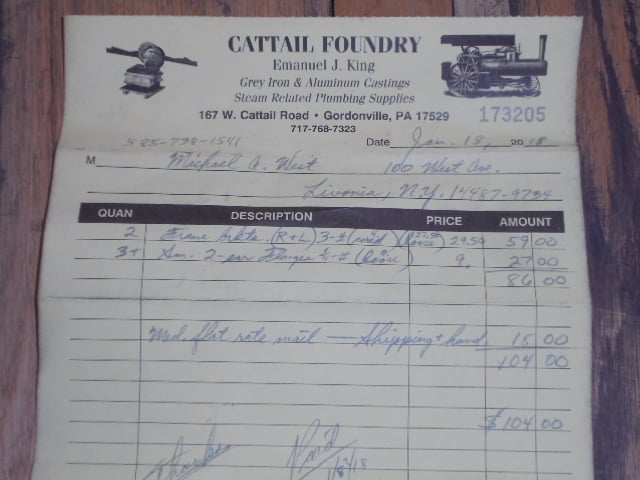 CATTAIL FOUNDRY
Emanuel J. King
Grey Iron & Aluminum Castings
Steam Related Plumbing Supplies
167 W. Cattail Road • Gordonville, PA 17529
173205
717-768-7323
585-738-1541
Date Jan. 18, 2018
M Michael A. West 100 West Ave.
Livonia, N.Y. 14487-9734
QUAN DESCRIPTION PRICE AMOUNT
2 Frame brkts. (R+L) 3-# (cored) 29.50 59 00
3+ Sm. 2-ear Flanges (Bronze) 9. 27 00
86 00
Med. flat rate mail — Shipping + hand. 18 00
104 00
$104 00
Thanks Paid
1/8/18